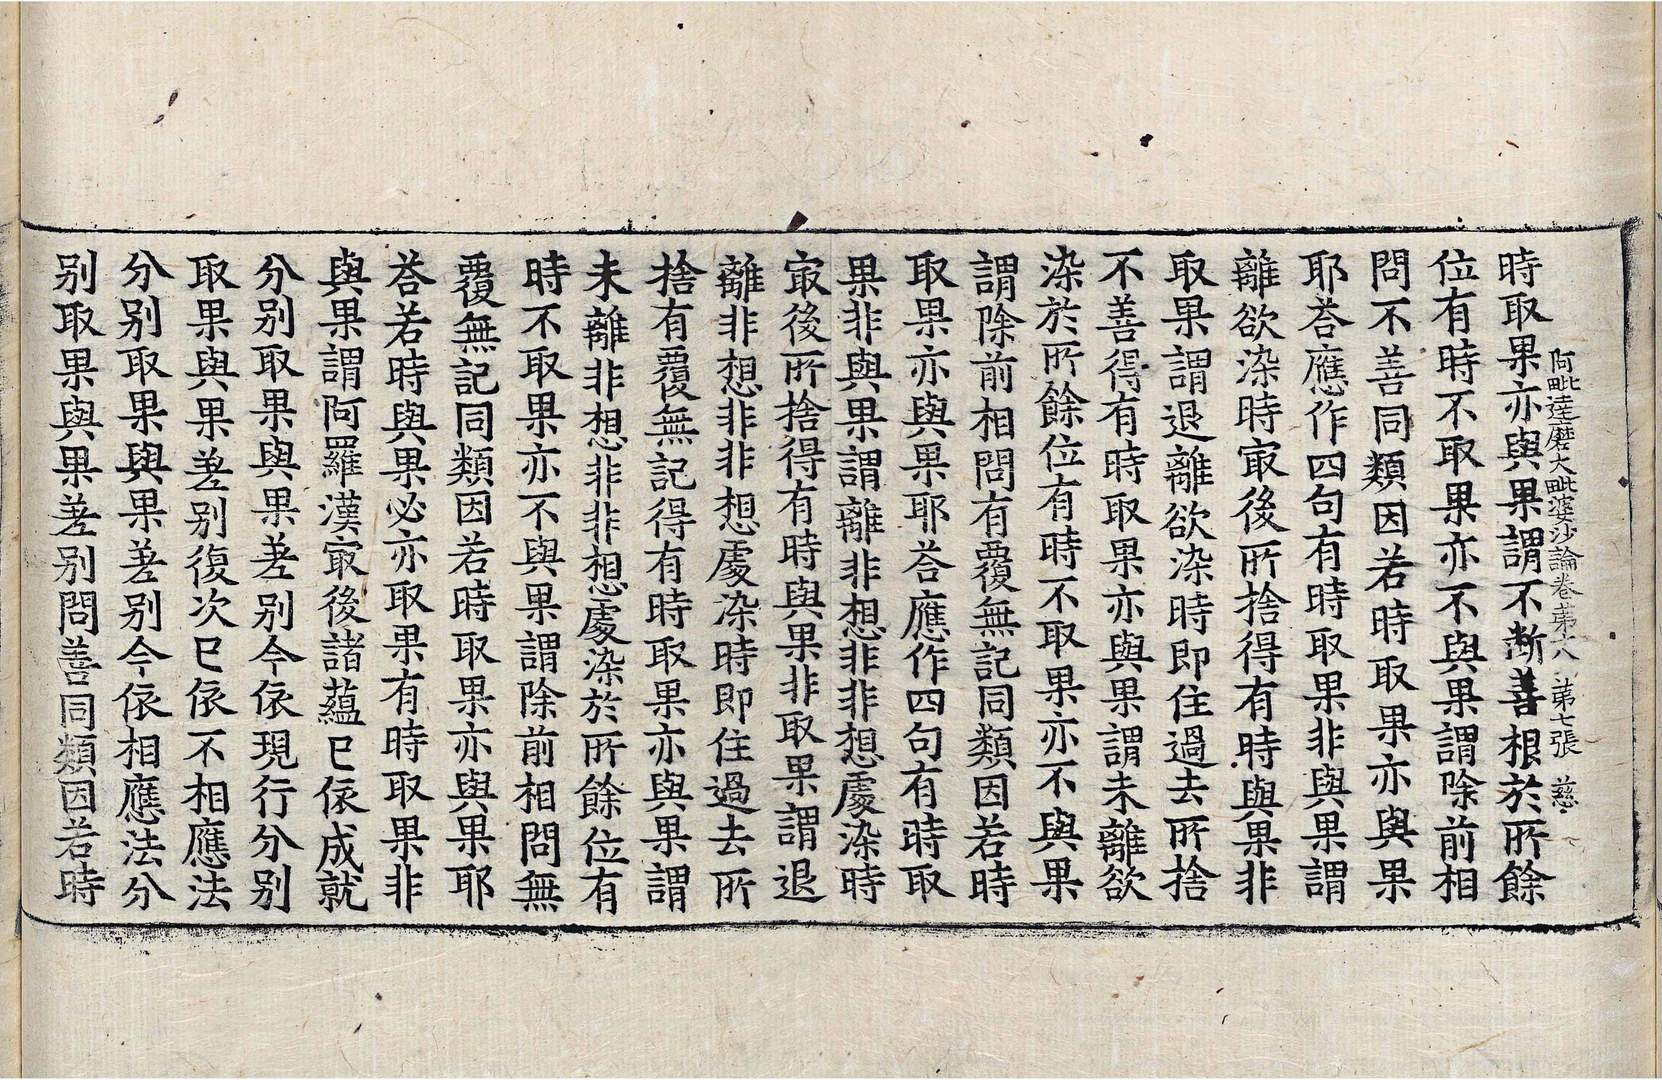 阿毗達磨大毗婆沙論卷第十八　第七張　慈
時取果亦與果謂不斷善根於所餘
位有時不取果亦不與果謂除前相
問不善同類因若時取果亦與果
耶荅應作四句有時取果非與果謂
離欲染時㝡後所捨得有時與果非
取果謂退離欲染時即住過去所捨
不善得有時取果亦與果謂未離欲
染於所餘位有時不取果亦不與果
謂除前相問有覆無記同類因若時
取果亦與果耶荅應作四句有時取
果非與果謂離非想非非想處染時
㝡後所捨得有時與果非取果謂退
離非想非非想處染時即住過去所
捨有覆無記得有時取果亦與果謂
未離非想非非想處染於所餘位有
時不取果亦不與果謂除前相問無
覆無記同類因若時取果亦與果耶
荅若時與果必亦取果有時取果非
與果謂阿羅漢㝡後諸蘊已依成就
分別取果與果差別今依現行分別
取果與果差別復次已依不相應法
分別取果與果差別今依相應法分
別取果與果差別問善同類因若時